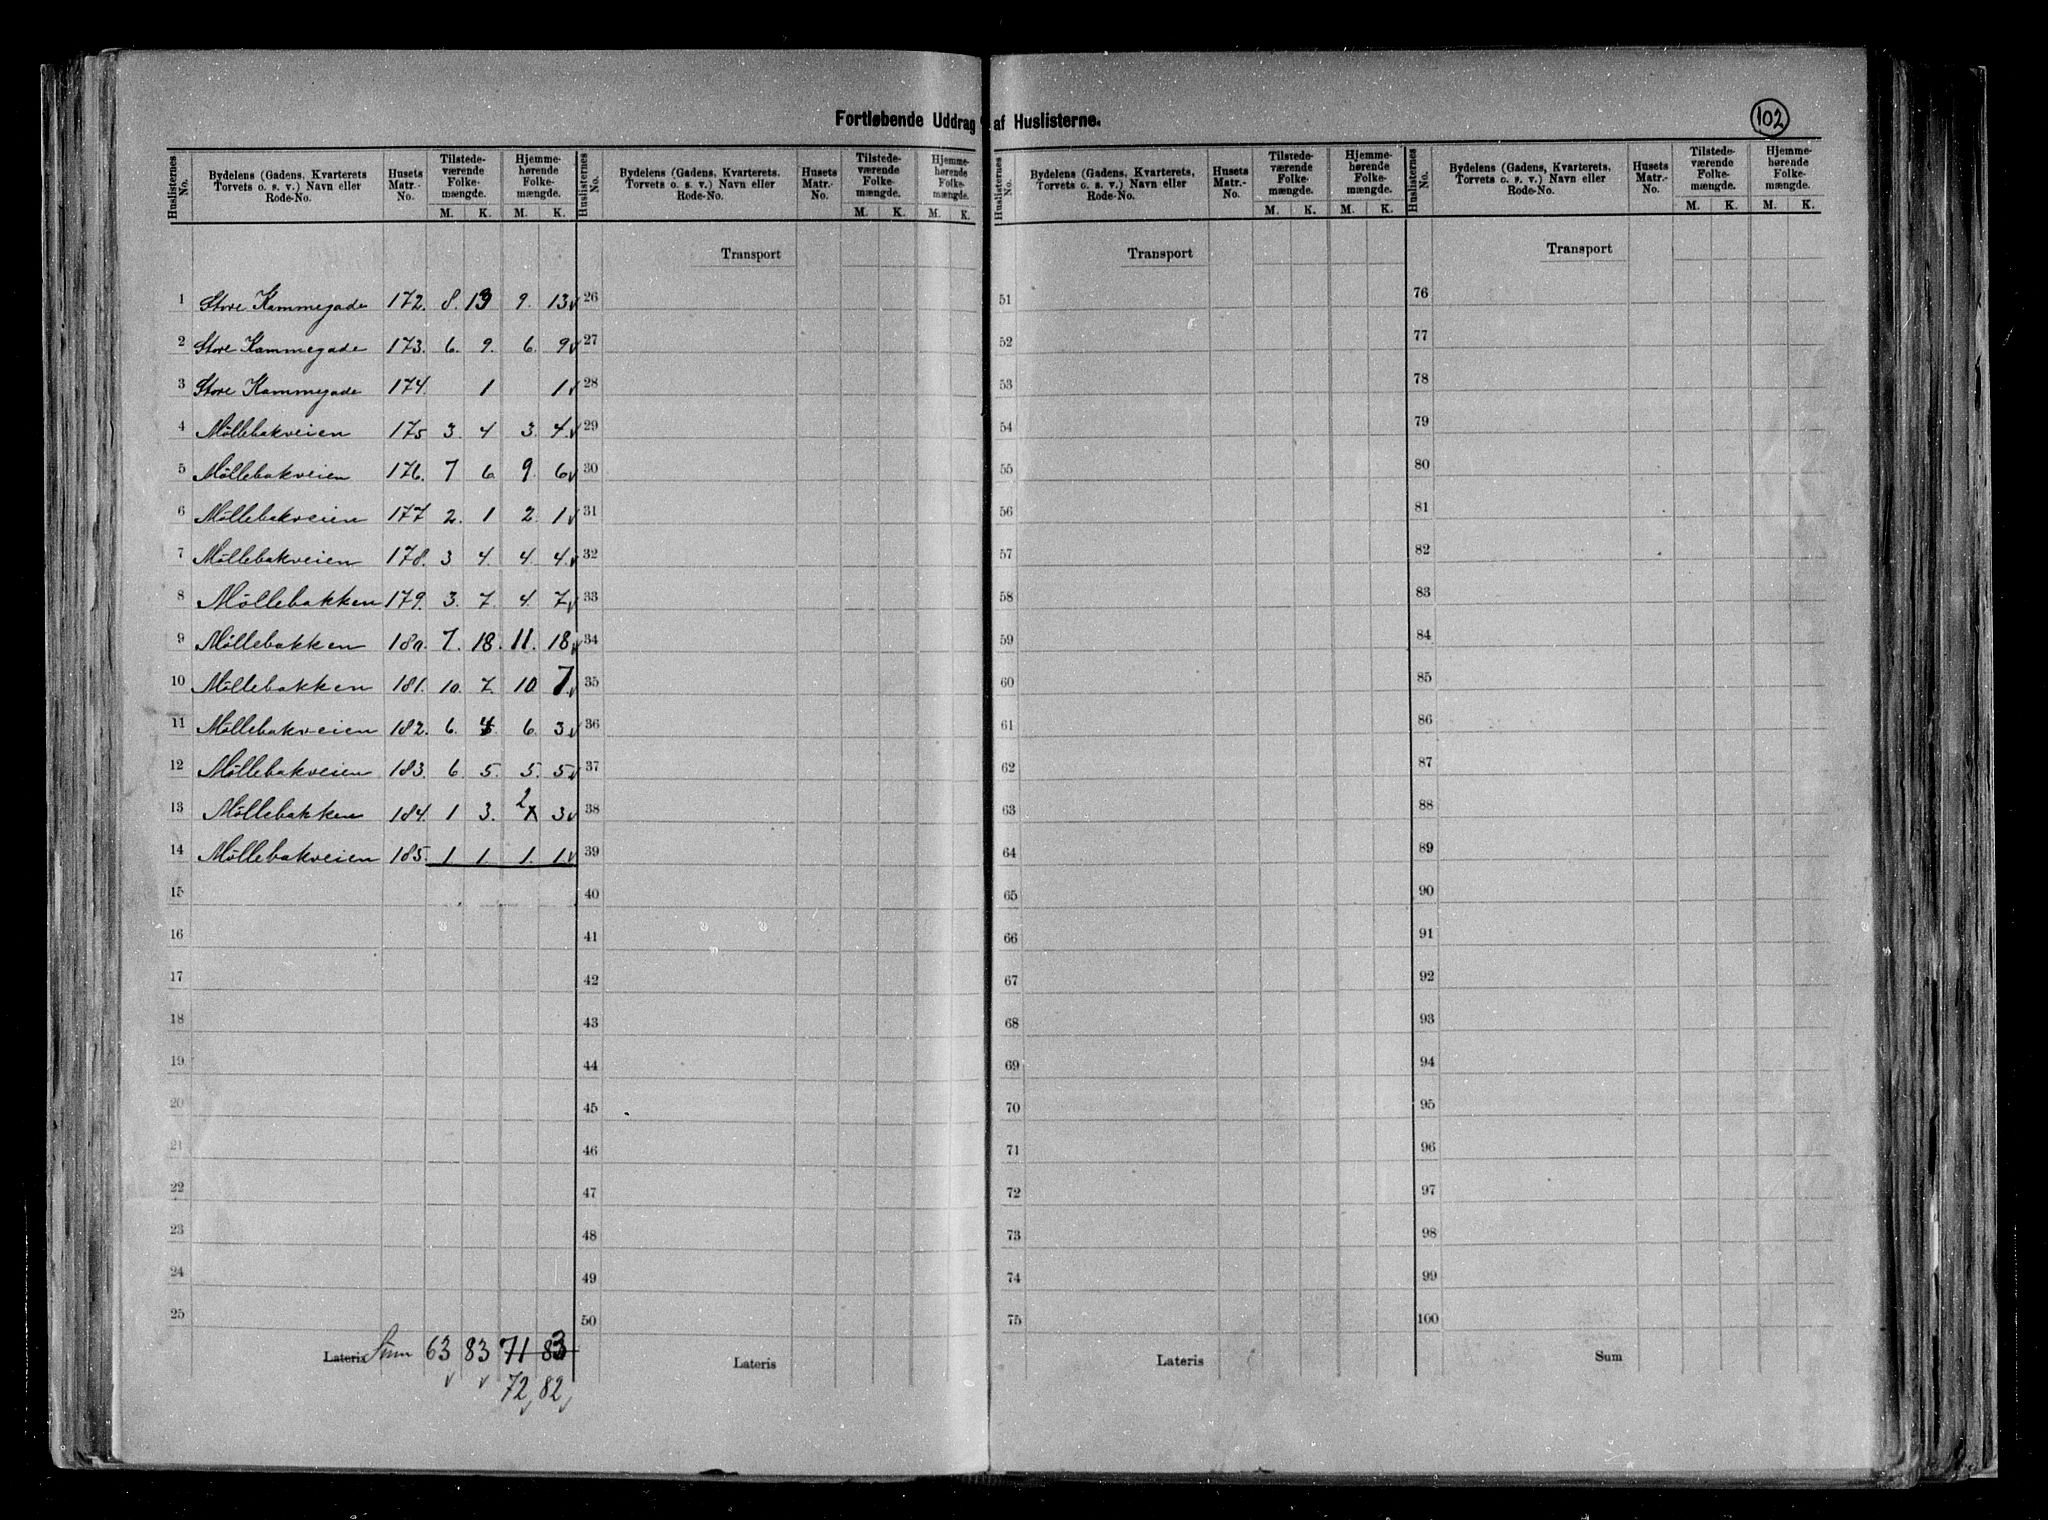 Fortløbende Uddrag af Huslisterne.
102
Huslisternes No. | Bydelens (Gadens, Kvarterets, Torvets o. s. v.) Navn eller Rode-No. | Husets Matr.-No. | Tilstedeværende Folkemængde. M. K. | Hjemmehørende Folkemængde. M. K.
Huslisternes No. | Bydelens (Gadens, Kvarterets, Torvets o. s. v.) Navn eller Rode-No. | Husets Matr.-No. | Tilstedeværende Folkemængde. M. K. | Hjemmehørende Folkemængde. M. K.
Huslisternes No. | Bydelens (Gadens, Kvarterets, Torvets o. s. v.) Navn eller Rode-No. | Husets Matr.-No. | Tilstedeværende Folkemængde. M. K. | Hjemmehørende Folkemængde. M. K.
Huslisternes No. | Bydelens (Gadens, Kvarterets, Torvets o. s. v.) Navn eller Rode-No. | Husets Matr.-No. | Tilstedeværende Folkemængde. M. K. | Hjemmehørende Folkemængde. M. K.
Transport Transport Transport
1 Store Kammegade 172. 8. 13 9. 13 26 51 76
2 Store Kammegade 173. 6. 9. 6. 9 27 52 77
3 Store Kammegade 174. 1 1 28 53 78
4 Møllebakveien 175 3. 4 3. 4 29 54 79
5 Møllebakveien 176. 7 6 9. 6 30 55 80
6 Møllebakveien 177 2. 1 2. 1 31 56 81
7 Møllebakveien 178. 3 4. 4. 4 32 57 82
8 Møllebakken 179. 3. 7. 4. 7 33 58 83
9 Møllebakken 180. 7. 18. 11. 18 34 59 84
10 Møllebakken 181. 10. 7. 10 7 35 60 85
11 Møllebakveien 182. 6. 4. 6. 3 36 61 86
12 Møllebakveien 183. 6. 5. 5. 5 37 62 87
13 Møllebakken 184. 1 3. 2 3 38 63 88
14 Møllebakveien 185. 1 1. 1. 1 39 64 89
15 40 65 90
16 41 66 91
17 42 67 92
18 43 68 93
19 44 69 94
20 45 70 95
21 46 71 96
22 47 72 97
23 48 73 98
24 49 74 99
25 50 75 100
Lateris Sum 63 83 71 83 Lateris Lateris Sum
72 82